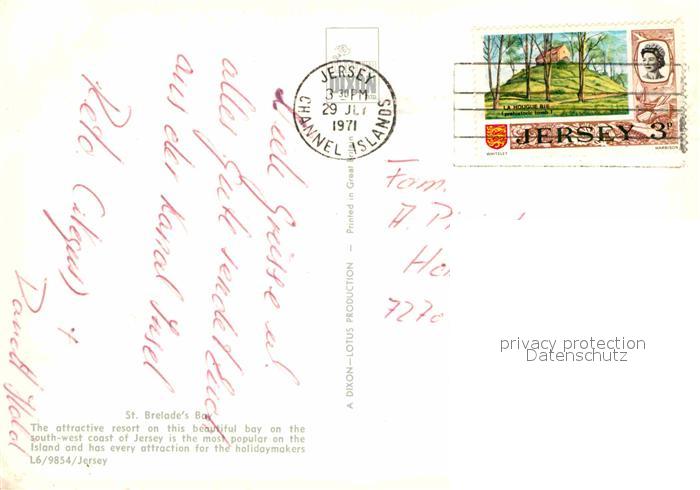 JERSEY
3 30 PM
29 JLY
1971
CHANNEL ISLANDS
LA HOUGUE BIE
(prehistoric tomb)
JERSEY 3P
WHITELEY
HARRISON
Grüsse
alles Gute sendet
aus der Kanal Insel
+
Fam.
A. P
7270
privacy protection
Datenschutz
A DIXON—LOTUS PRODUCTION — Printed in Great
St. Brelade's Bay
The attractive resort on this beautiful bay on the
south-west coast of Jersey is the most popular on the
Island and has every attraction for the holidaymakers
L6/9854/Jersey